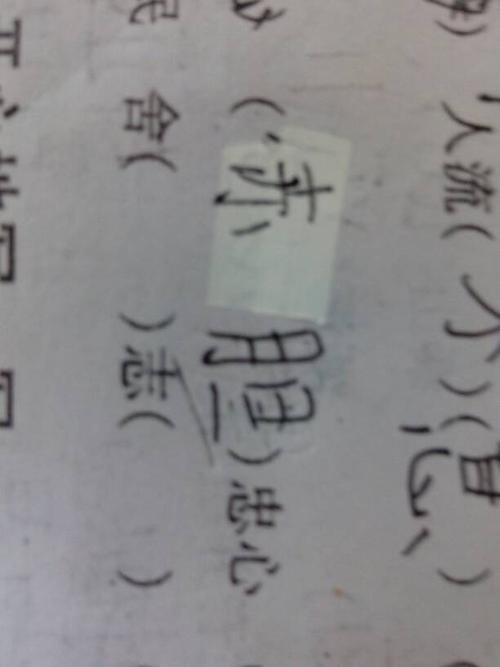 人流(不)(息)
(赤胆)忠心
舍( )志( )